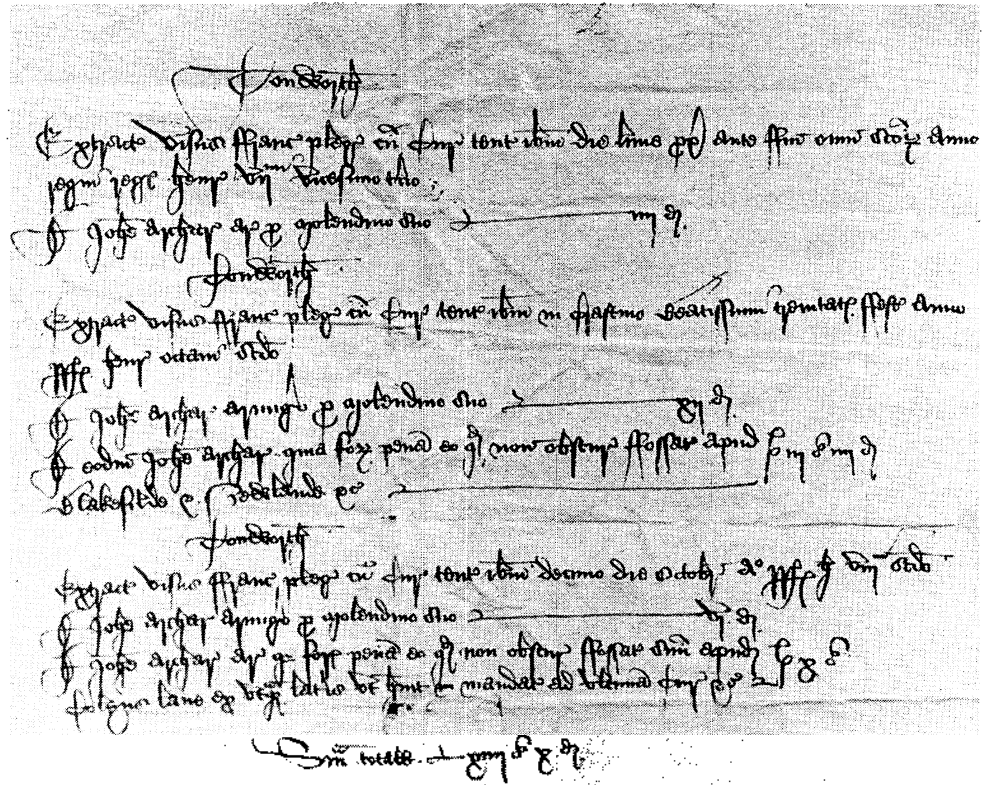 Tonworth
Extracte visus ffranc pleg cū Cur tent ibm die lune px ante ffm omn Scorz Anno
regni reg henr vii vicesimo tcio
D Johe Archer Ar p molendino suo iiij d.
Tonworth
Extracte visus ffranc pleg cū Cur tent ibm in Crastino Beatissime trinitat ffest Anno
RR henr octavi scdo
D Johe Archer Armigo p molendino suo xij d.
D eodm Johe Archer quia forz penā eo qd non obscur ffossat apud iij s iiij d
Blakefilde
Tonworth
Extracte visus ffranc pleg cū Cur tent ibm decimo die Octobr Ao RR h viij scdo
D Johe Archer Armigo p molendino suo vj d.
D Johe Archer Ar qr forz penā eo qd non obscur ffossat apud x s
lane ex utqz latis ut hnt in mandat ad ultimā Cur
Sm totalis xiiij s x d.